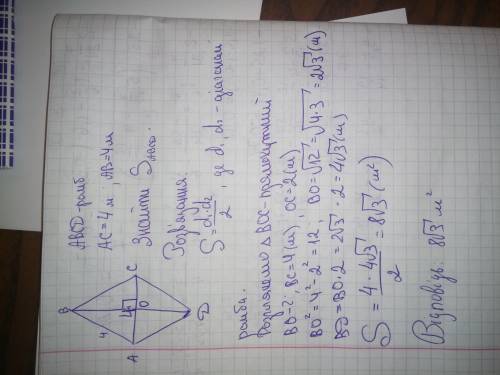 ABCD-ромб
AC=4 м, AB=4 м
Знайти S ABCD.
Розв'язання
S=d₁·d₂/2, де d₁, d₂ - діагоналі
ромба.
Розглянемо △BOC-прямокутний
BO-?, BC=4(м), OC=2(м)
BO²=4²-2²=12, BO=√12=√4·3=2√3(м)
BD=BO·2=2√3·2=4√3(м)
S=4·4√3/2=8√3(м²)
Відповідь: 8√3 м²
B
4
A
O
C
D